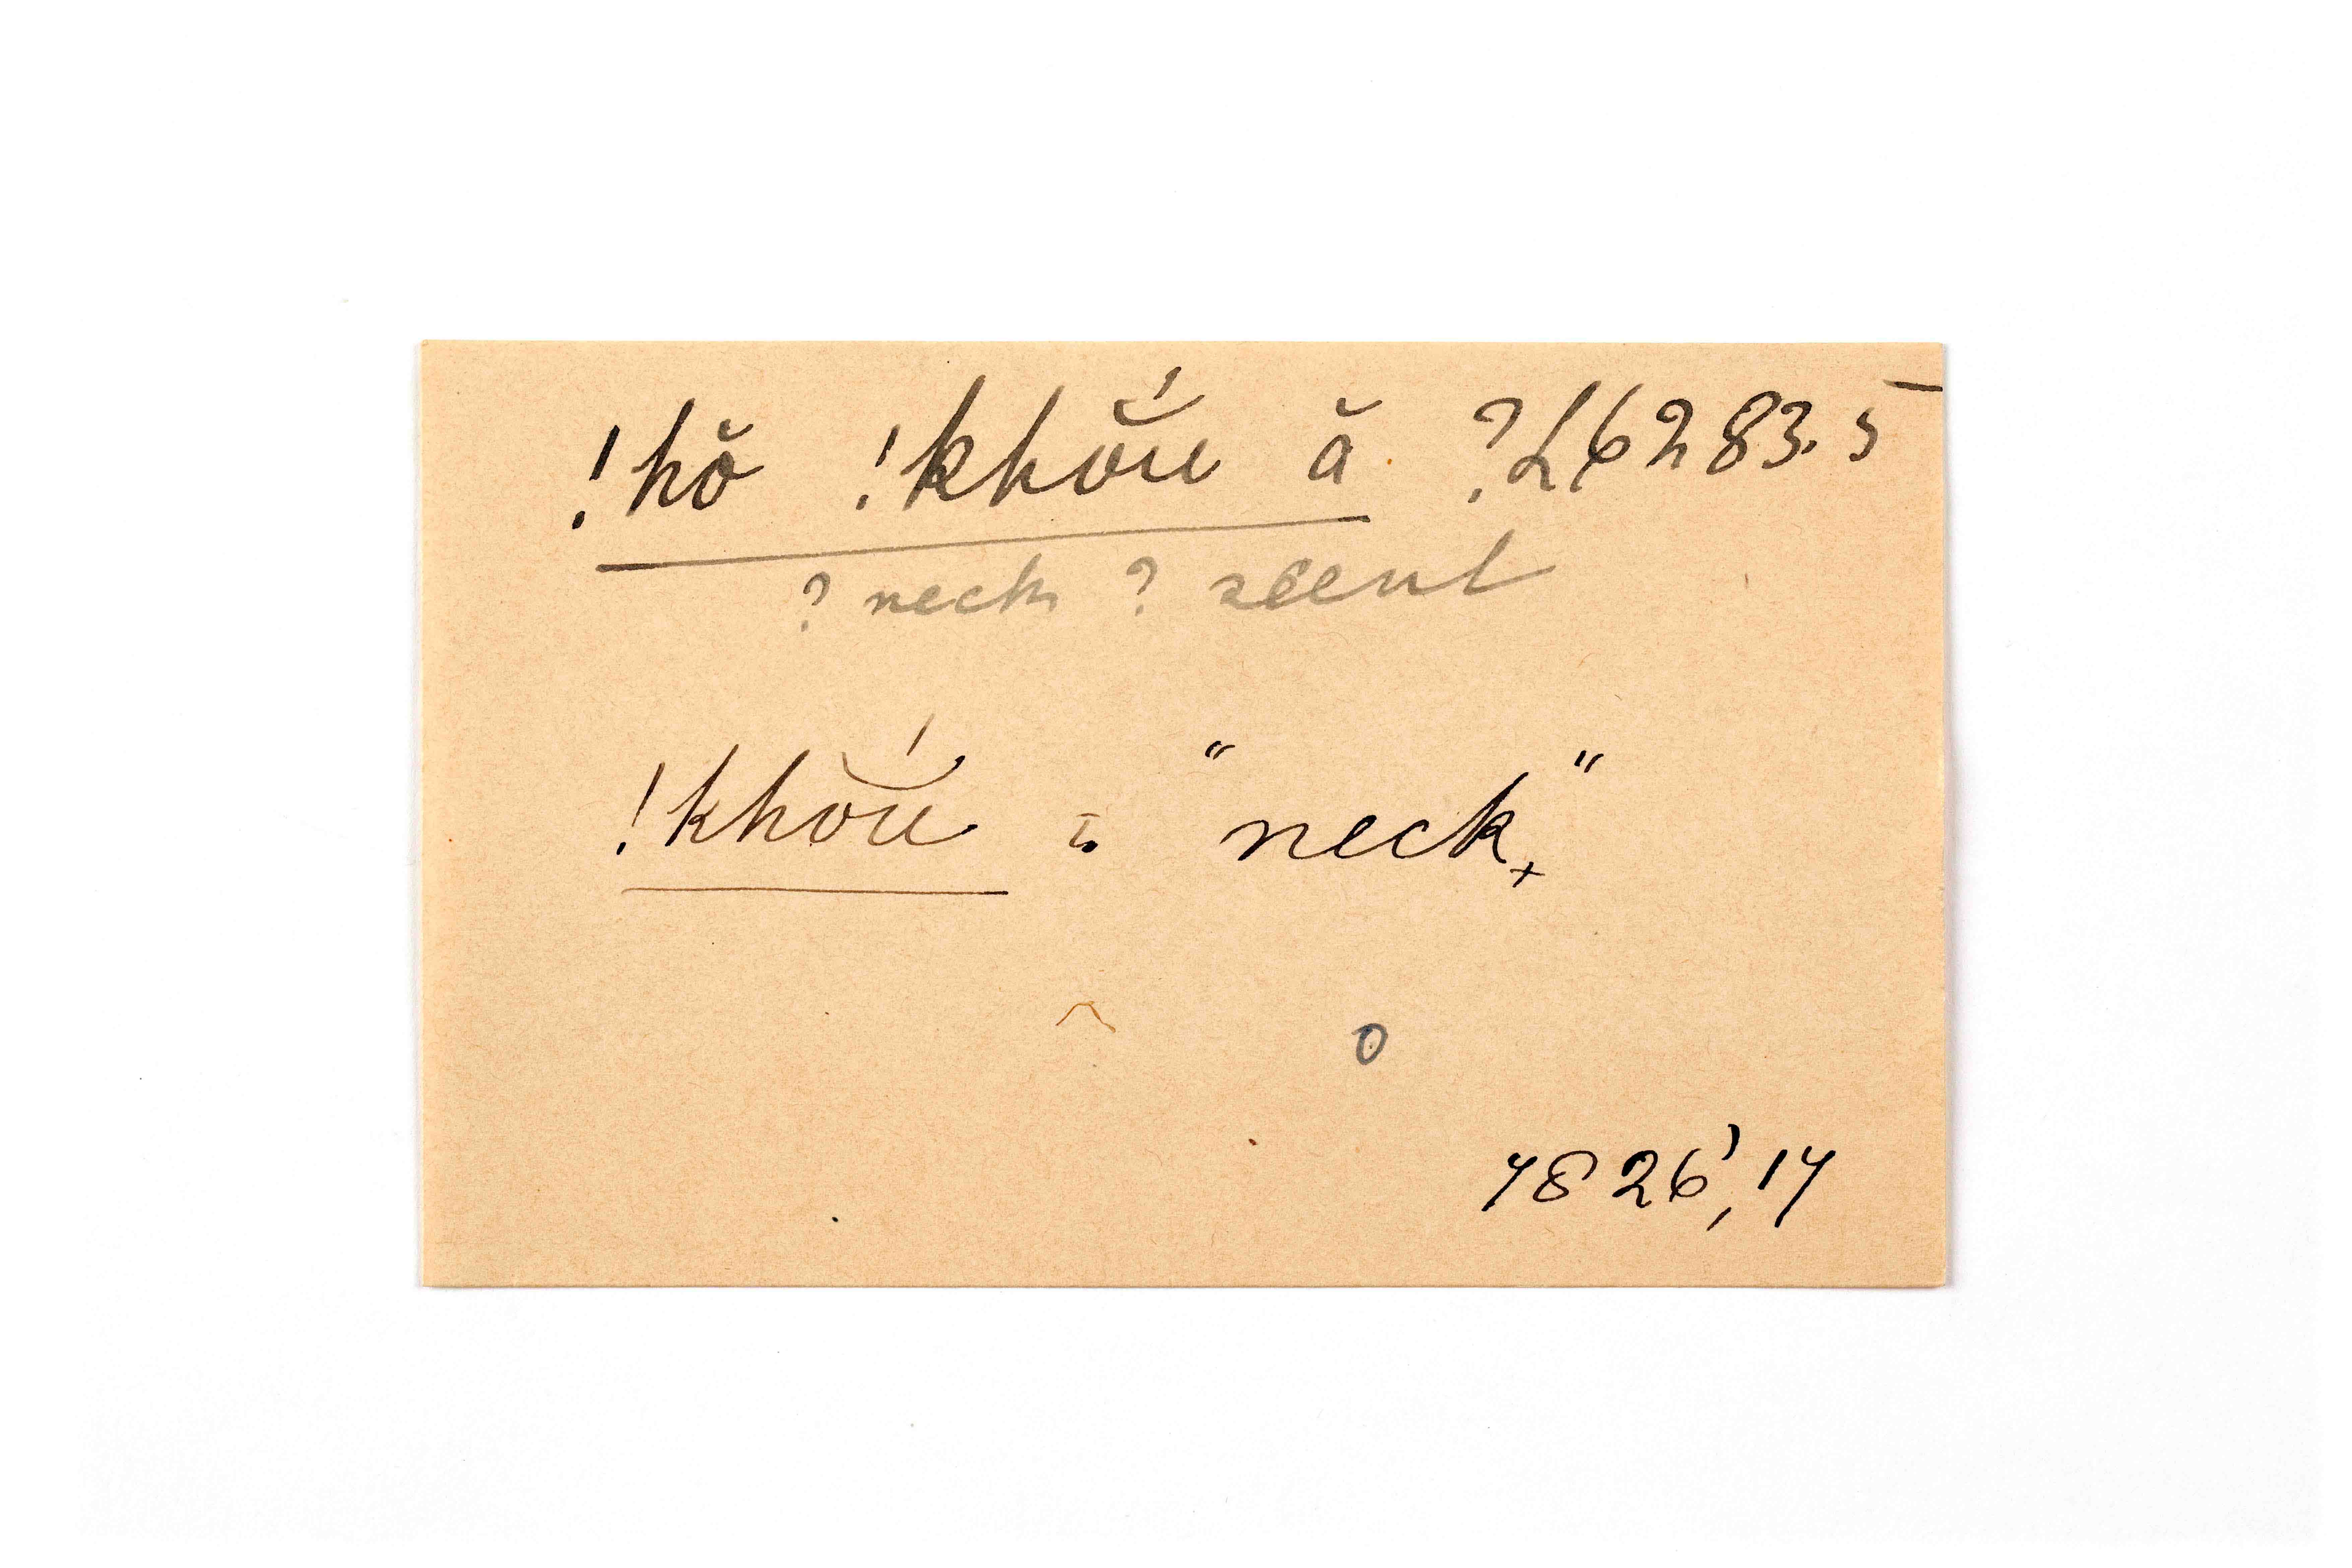 !hŏ !khŏ́u ă ?L6283.5
? neck ? scent
!khŏ́u is "neck"
o
7826',17